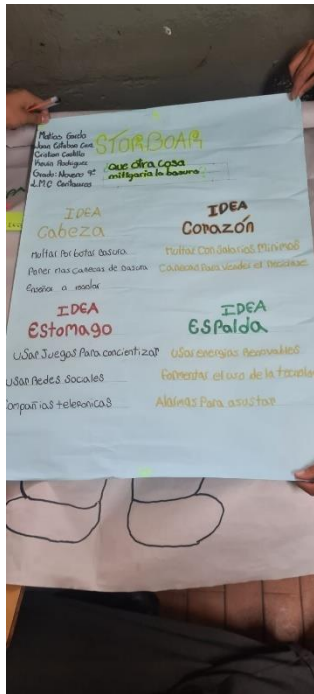 Matias Gardo
Juan Esteban Cano
Cristian Castillo
Kevin Rodriguez
Grado: Noveno 9°
I.M.C
STORBOAR
que otra cosa
mitigaria la basura
IDEA
Cabeza
multar Por botar basura
Poner mas canecas de basura
Enseñar a reciclar
IDEA
Corazón
multar Con Salarios minimos
Canecas Para vender el Reciclaje
IDEA
Estomago
USar Juegos Para concientizar
usar Redes Sociales
Compañias telefonicas
IDEA
ESPalda
usar energias Renovables
Fomentar el uso de la tecnolo
Alarmas Para asustar